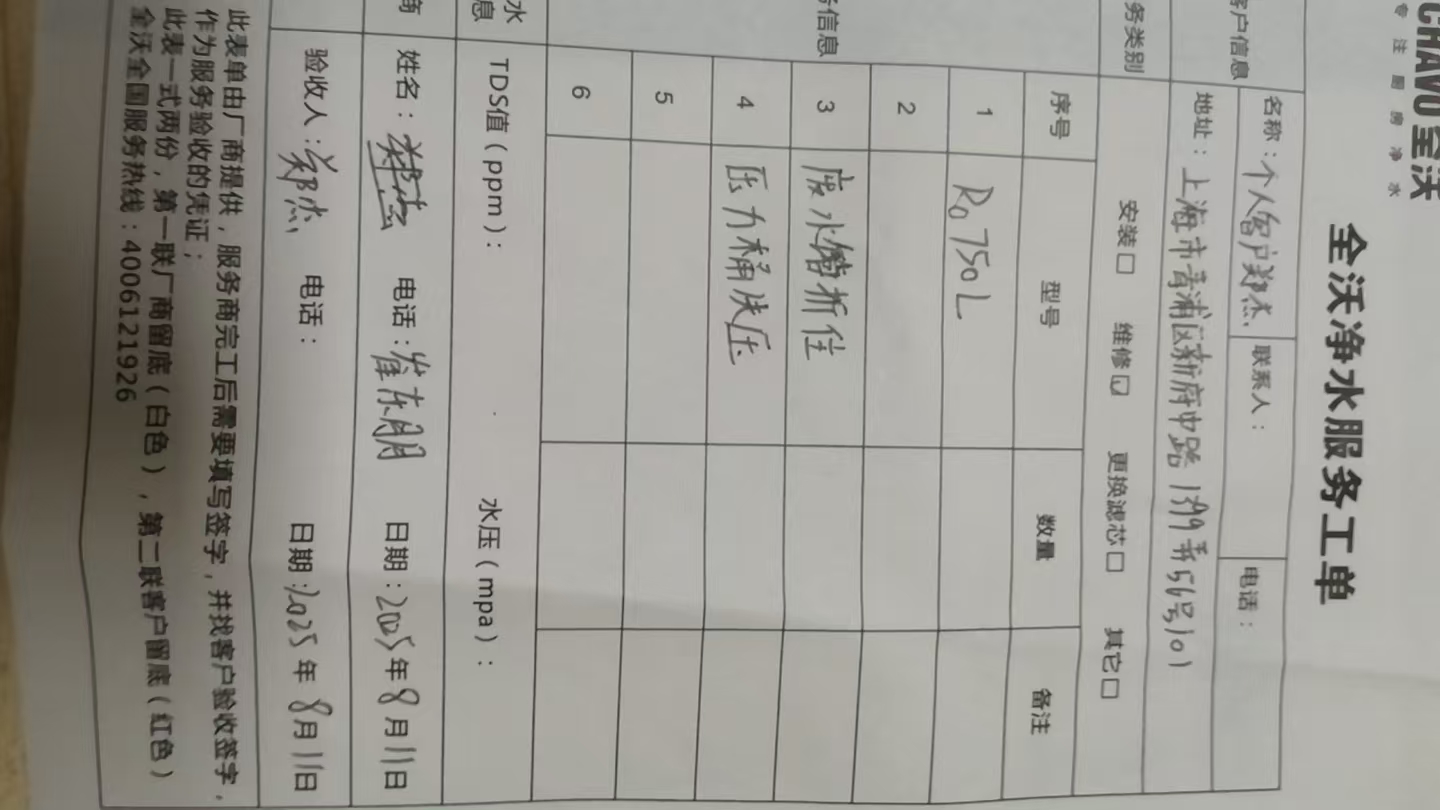 CHAVO全沃
专注厨房净水
全沃净水服务工单
客户信息 名称：个人客户郑杰 联系人： 电话：
地址：上海市青浦区新府中路1399弄56号101
务类别 安装□ 维修☑ 更换滤芯□ 其它□
务信息 序号 型号 数量 备注
1 Ro 750L
2
3 废水 折住
4 压力桶失压
5
6
水 TDS值（ppm）： 水压（mpa）：
息
商 姓名： 电话：崔东朋 日期：2025年8月11日
验收人：郑杰 电话： 日期：2025年8月11日
此表单由厂商提供，服务商完工后需要填写签字，并找客户验收签字，
作为服务验收的凭证；
此表一式两份，第一联厂商留底（白色），第二联客户留底（红色）
全沃全国服务热线：4006121926